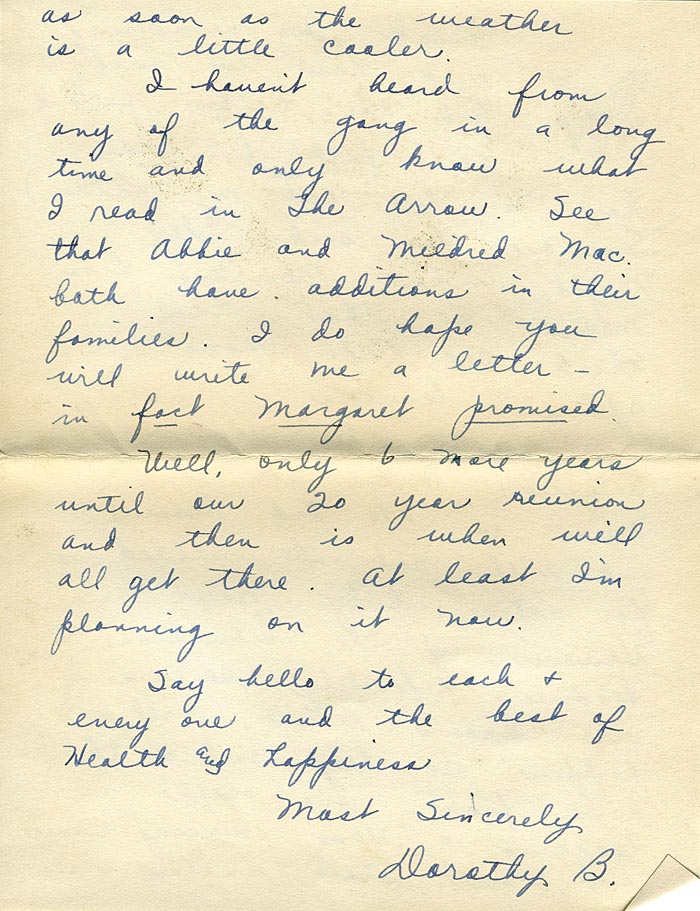 as soon as the weather
is a little cooler.
I haven't heard from
any of the gang in a long
time and only know what
I read in The Arrow. See
that Abbie and Mildred Mac.
both have additions in their
families. I do hope you
will write me a letter –
in fact Margaret promised.
Well, only 6 more years
until our 20 year reunion
and then is when we'll
all get there. At least I'm
planning on it now.
Say hello to each &
every one and the best of
Health and Happiness
Most Sincerely
Dorothy B.